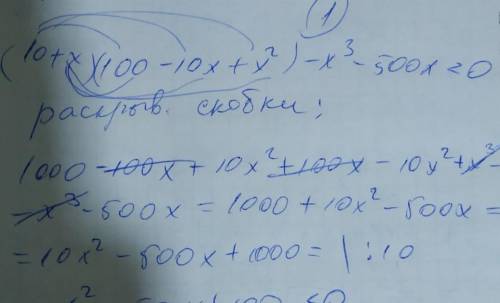 1
(10+x)(100-10x+x²)-x³-500x=0
раскрыв. скобки;
1000-100x+10x²+100x-10x²+x³-
-x³-500x=1000+10x²-500x=
=10x²-500x+1000= |:10